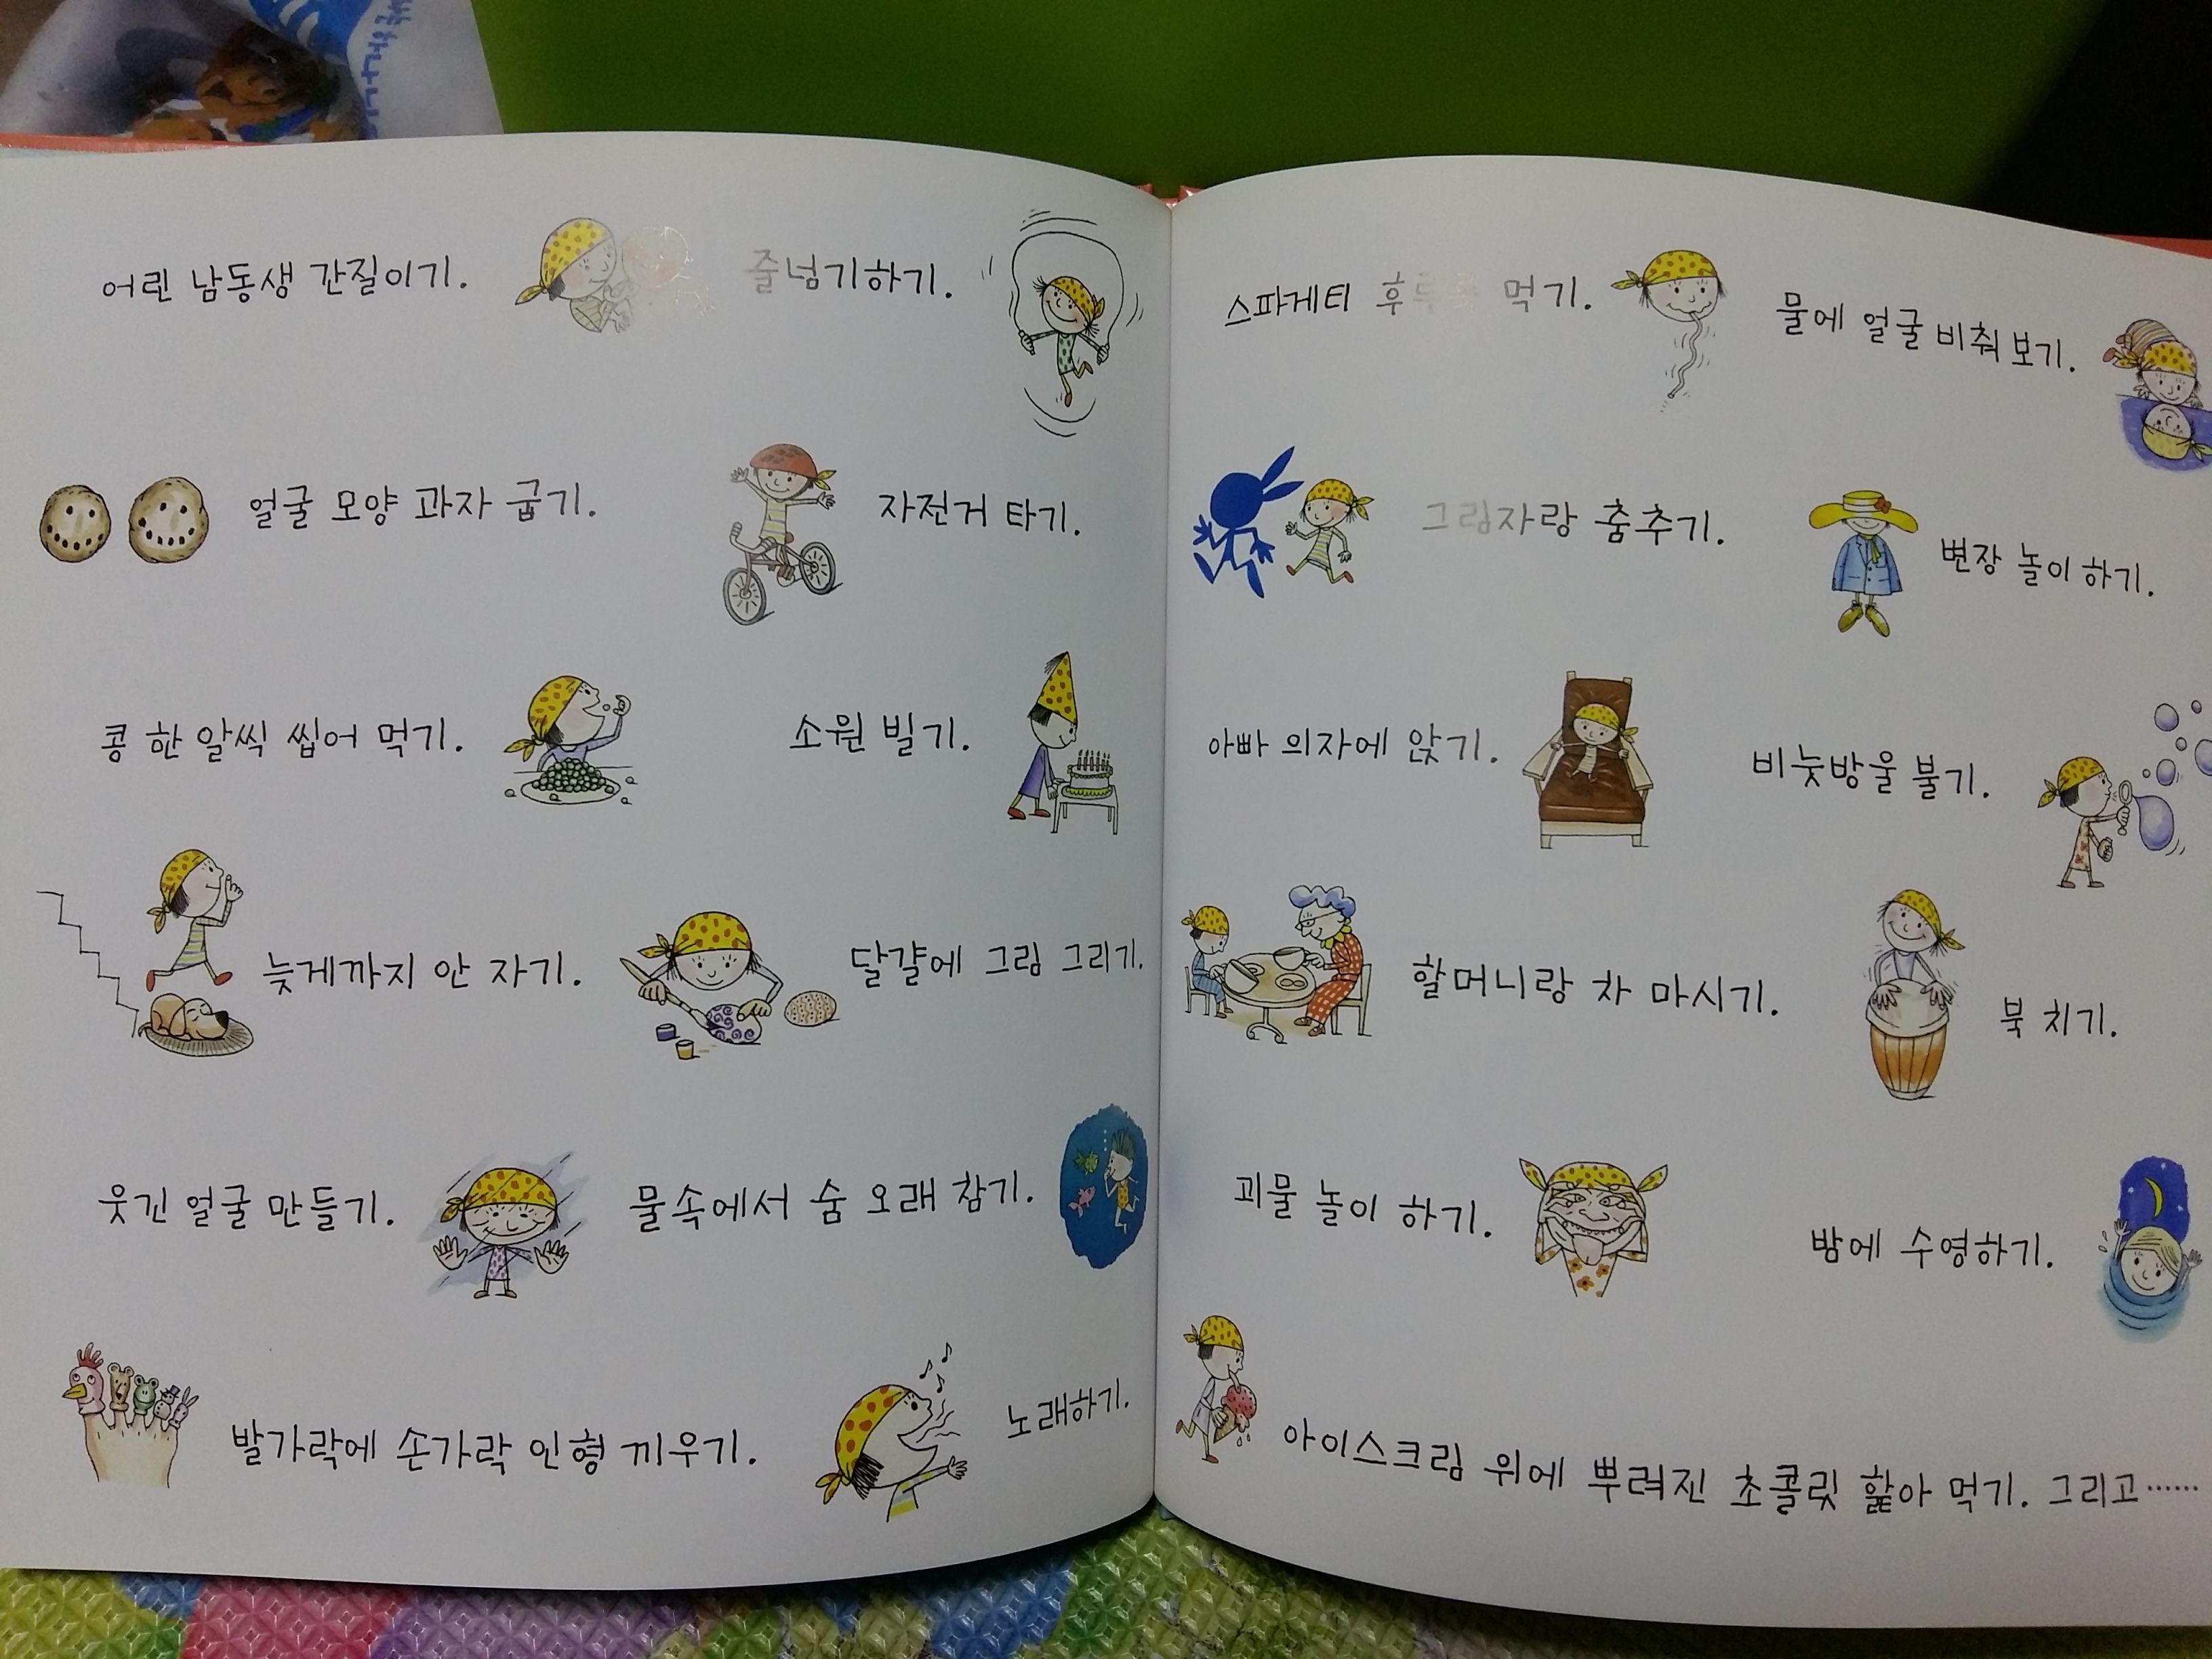 어린 남동생 간질이기. 줄넘기하기.
얼굴 모양 과자 굽기. 자전거 타기.
콩 한 알씩 씹어 먹기. 소원 빌기.
늦게까지 안 자기. 달걀에 그림 그리기.
웃긴 얼굴 만들기. 물속에서 숨 오래 참기.
발가락에 손가락 인형 끼우기. 노래하기.
스파게티 먹기. 물에 얼굴 비춰 보기.
그림자랑 춤추기. 변장 놀이 하기.
아빠 의자에 앉기. 비눗방울 불기.
할머니랑 차 마시기. 북 치기.
괴물 놀이 하기. 밤에 수영하기.
아이스크림 위에 뿌려진 초콜릿 핥아 먹기. 그리고······